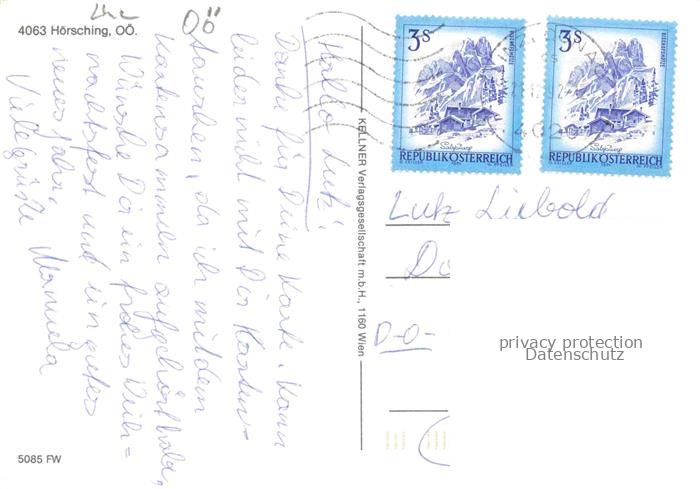 4063 Hörsching, OÖ.
OÖ
Hallo Lutz!
Danke für Deine Karte. Kann
leider nicht mit Dir Karten
tauschen, da ich mit dem
Kartensammeln aufgehört habe.
Wünsche Dir ein frohes Weih=
nachtsfest und ein gutes
neues Jahr.
Viele Grüße Manuela
5085 FW
KELLNER Verlagsgesellschaft m.b.H., 1160 Wien
3S
Salzburg
REPUBLIK ÖSTERREICH
3S
Salzburg
REPUBLIK ÖSTERREICH
Lutz Liebold
D-O-
privacy protection
Datenschutz